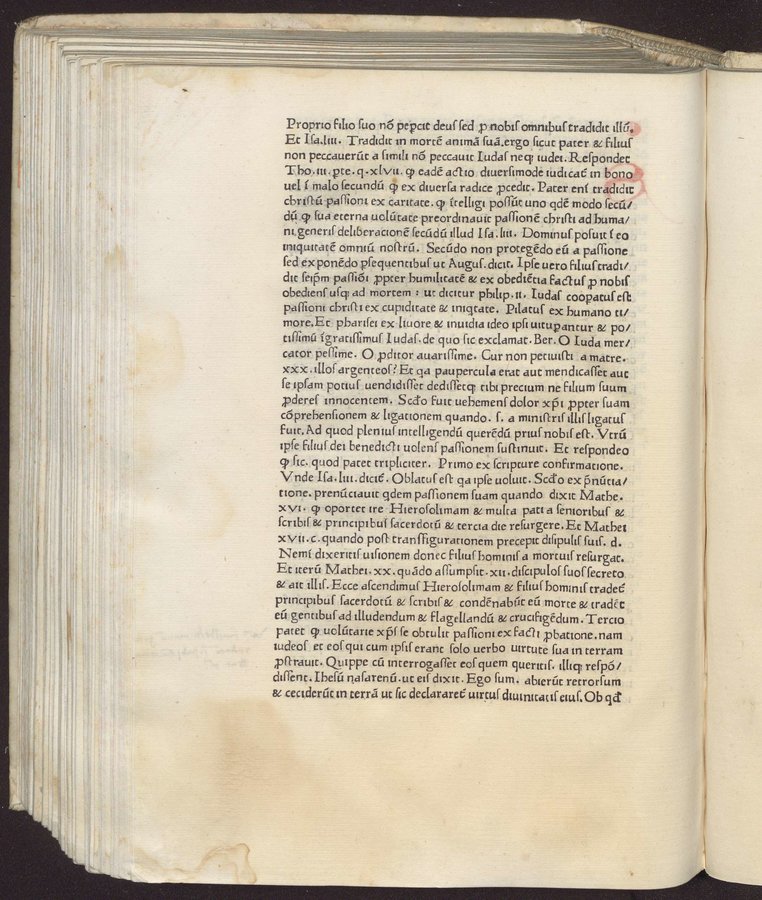 Proprio filio suo nõ pepcit deus sed ꝓ nobis omnibus tradidit illũ.
Et Isa.liii. Tradidit in mortẽ animã suã.ergo sicut pater & filius
non peccauerũt a simili nõ peccauit Iudas neqꝫ iudei. Respondet
Tho.iii.pte.q.xlvii. ꝙ eadẽ actio diuersimode iudicat̃ in bono
uel ĩ malo secundũ ꝙ ex diuersa radice ꝓcedit. Pater enĩ tradidit
christũ passioni ex caritate. ꝙ ĩtelligi possũt uno qdẽ modo secũ/
dũ ꝙ sua eterna uolũtate preordinauit passionẽ christi ad huma/
ni generis deliberacionẽ secũdũ illud Isa.liii. Dominus posuit ĩ eo
iniquitatẽ omniũ nostrũ. Secũdo non protegẽdo eũ a passione
sed exponẽdo ꝑsequentibus ut Augus.dicit. Ipse uero filius tradi/
dit seipm̃ passiõi ꝓpter humilitatẽ & ex obediẽtia factus ꝓ nobis
obediens usqꝫ ad mortem : ut dicitur philip.ii. Iudas coopatus est
passioni christi ex cupiditate & iniqtate. Pilatus ex humano ti/
more.Et pharisei ex liuore & inuidia ideo ipsi uitupantur & po/
tissimũ ĩgratissimus Iudas.de quo sic exclamat.Ber.O Iuda mer/
cator pessime. O ꝓditor auarissime. Cur non petiuisti a matre.
xxx.illos argenteos? Et qa paupercula erat aut mendicasset aut
se ipsam potius uendidisset dedissetqꝫ tibi precium ne filium suum
ꝓderes innocentem. Scdo fuit uehemens dolor xp̃i ꝓpter suam
cõprehensionem & ligationem quando. s. a ministris illis ligatus
fuit.Ad quod plenius intelligendũ querẽdũ prius nobis est. Vtrũ
ipse filius dei benedicti uolens passionem sustinuit. Et respondeo
ꝙ sic. quod patet tripliciter. Primo ex scripture confirmatione.
Vnde Isa.liii.dicit̃. Oblatus est qa ipse uoluit. Scdo ex p̃nũtia/
tione. prenũciauit qdem passionem suam quando dixit Mathe.
xvi. ꝙ oportet ire Hierosolimam & multa pati a senioribus &
scribis & principibus sacerdotũ & tercia die resurgere. Et Mathei
xvii.c.quando post transfigurationem precepit disipulis suis. d.
Nemĩ dixeritis uisionem donec filius hominis a mortuis resurgat.
Et iterũ Mathei.xx.quãdo assumpsit.xii.discipulos suos secreto
& ait illis. Ecce ascendimus Hierosolimam & filius hominis tradet̃
principibus sacerdotũ & scribis & condẽnabũt eũ morte & tradẽt
eũ gentibus ad illudendum & flagellandũ & crucifigẽdum. Tercio
patet ꝙ uolũtarie xp̃s se obtulit passioni ex facti ꝓbatione.nam
iudeos et eos qui cum ipsis erant solo uerbo uirtute sua in terram
ꝓstrauit. Quippe cũ interrogasset eos quem queritis. illiqꝫ respõ/
dissent. Ihesũ nasarenũ.ut eis dixit. Ego sum. abierũt retrorsum
& ceciderũt in terrã ut sic declararet̃ uirtus diuinitatis eius. Ob qđ